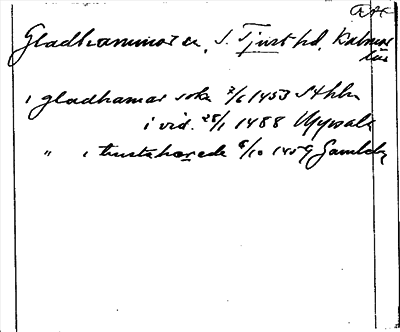 RAC
Gladhammar sn, S. Tjust hd, Kalmar
län
i gladhamar sokn 7/6 1453 Sthlm
i vid. 28/1 1488 Uppsala
" i tiustahærede 8/10 1459 Gamleby